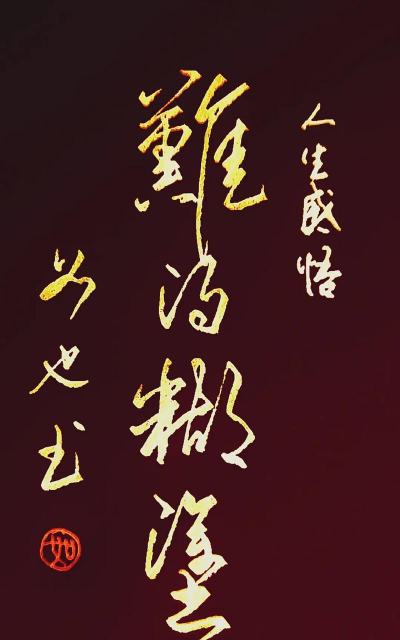 人生感悟
難得糊塗
如也书